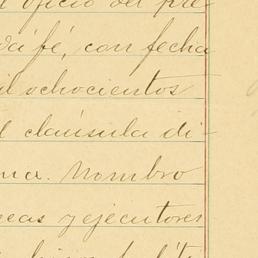 oficio del pre-
dá fé, con fecha
il ochocientos
l claúsula di-
ma. Nombro
ceas y ejecutores